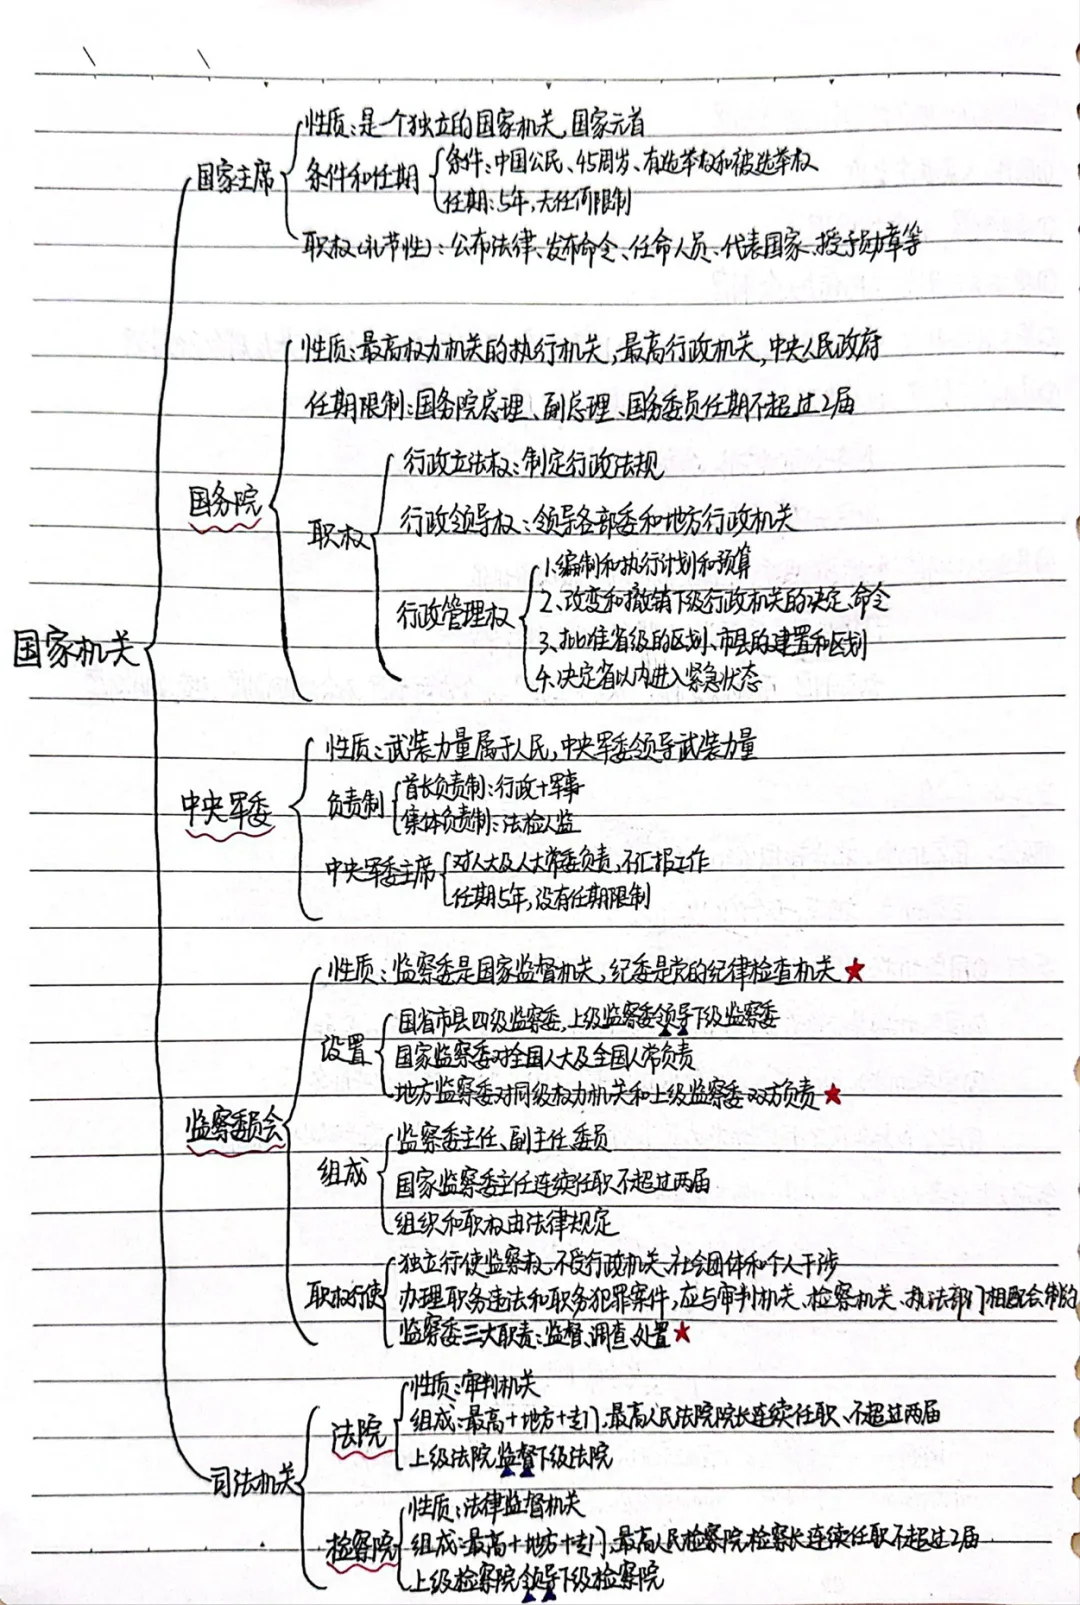 性质：是一个独立的国家机关，国家元首
国家主席
条件和任期
条件：中国公民、45周岁、有选举权和被选举权
任期：5年，无任何限制
职权（礼节性）：公布法律、发布命令、任命人员、代表国家、授予勋章等
性质：最高权力机关的执行机关，最高行政机关，中央人民政府
任期限制：国务院总理、副总理、国务委员任期不超过2届
国务院
职权
行政立法权：制定行政法规
行政领导权：领导各部委和地方行政机关
行政管理权
1.编制和执行计划和预算
2、改变和撤销下级行政机关的决定、命令
3、批准省级的区划、市县的建置和区划
4.决定省以内进入紧急状态
国家机关
性质：武装力量属于人民，中央军委领导武装力量
中央军委
负责制
首长负责制：行政+军事
集体负责制：法检人监
中央军委主席
对人大及人大常委负责，不汇报工作
任期5年，没有任期限制
性质：监察委是国家监督机关，纪委是党的纪律检查机关★
设置
国省市县四级监察委，上级监察委领导下级监察委
国家监察委对全国人大及全国人常负责
地方监察委对同级权力机关和上级监察委双方负责★
监察委员会
组成
监察委主任、副主任、委员
国家监察委主任连续任职不超过两届
组织和职权由法律规定
职权行使
独立行使监察权，不受行政机关、社会团体和个人干涉
办理职务违法和职务犯罪案件，应与审判机关、检察机关、执法部门相配合制约
监察委三大职责：监督、调查、处置★
司法机关
法院
性质：审判机关
组成：最高+地方+专门，最高人民法院院长连续任职、不超过两届
上级法院监督下级法院
检察院
性质：法律监督机关
组成：最高+地方+专门，最高人民检察院检察长连续任职不超过2届
上级检察院领导下级检察院